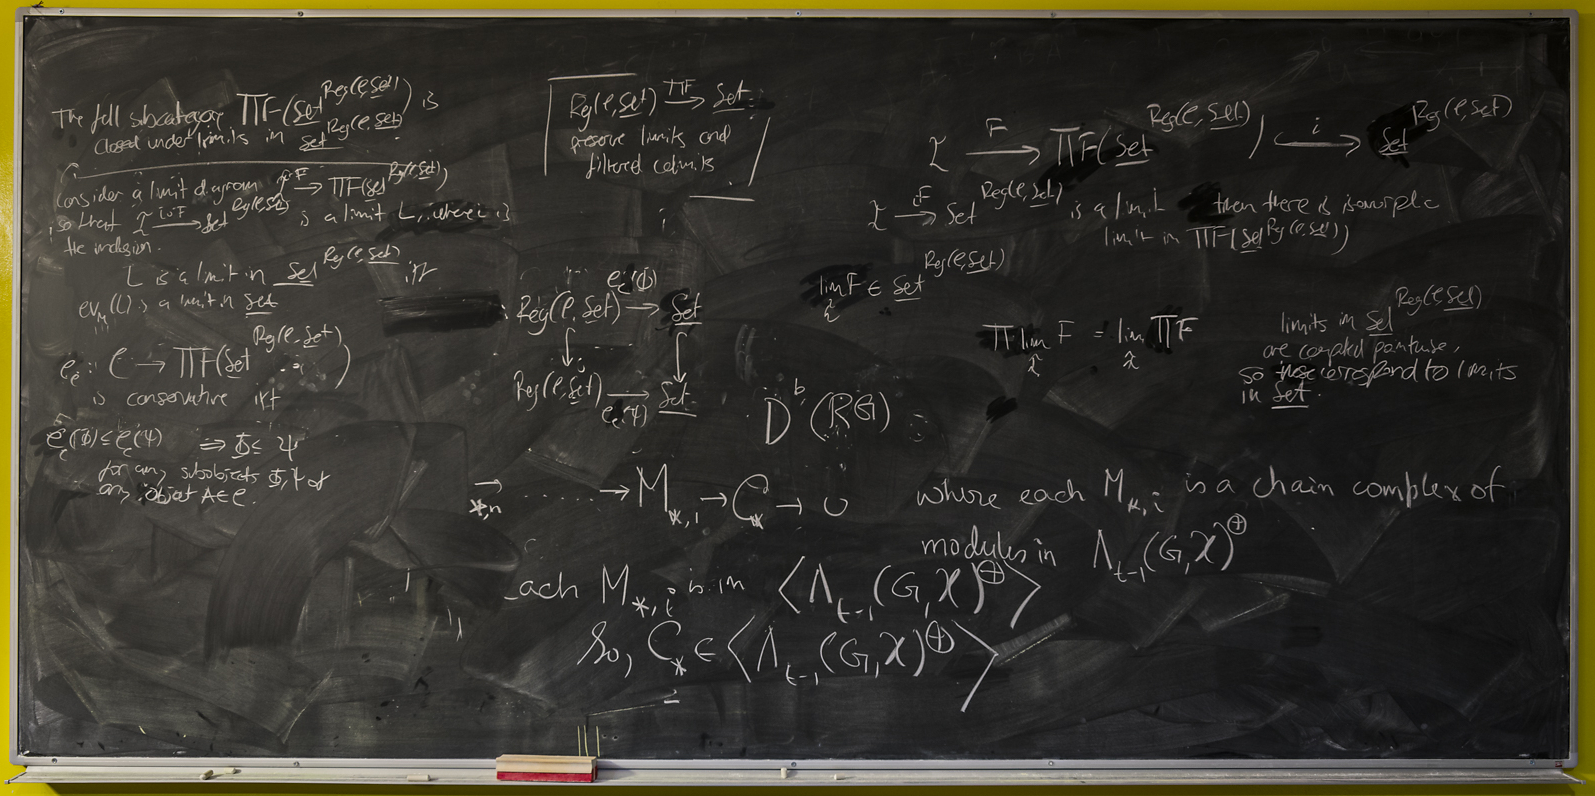 The full subcategory ΠF(Set^Reg(C,Set)) is
closed under limits in Set^Reg(C,Set)
Consider a limit diagram F → ΠF(Set^Reg(C,Set))
so that I i∘F → Set^Reg(C,Set) is a limit L, where i is
the inclusion.
L is a limit in Set^Reg(C,Set) iff
ev_M(L) is a limit in Set
e_C : C → ΠF(Set^Reg(C,Set))
is conservative iff
e_C(Φ) ≤ e_C(Ψ) ⇒ Φ ≤ Ψ
for any subobjects Φ, Ψ of
any object A ∈ C.
Reg(C,Set) ΠF → Set
preserve limits and
filtered colimits
Reg(C,Set) e_C(Φ) → Set
↓ ↓
Reg(C,Set) e_C(Ψ) → Set
I F → ΠF(Set^Reg(C,Set)) i ↪ Set^Reg(C,Set)
I iF → Set^Reg(C,Set) is a limit then there is isomorphic
limit in ΠF(Set^Reg(C,Set))
lim_I F ∈ Set^Reg(C,Set)
Π lim_I F = lim_I ΠF
limits in Set^Reg(C,Set)
are computed pointwise,
so these correspond to limits
in Set.
D^b(RG)
*,n → ...... → M_*,1 → C_* → 0 where each M_*,i is a chain complex of
modules in Λ_t-1(G,X)^⊕
ach M_*,i is in ⟨Λ_t-1(G,X)^⊕⟩
So, C_* ∈ ⟨Λ_t-1(G,X)^⊕⟩